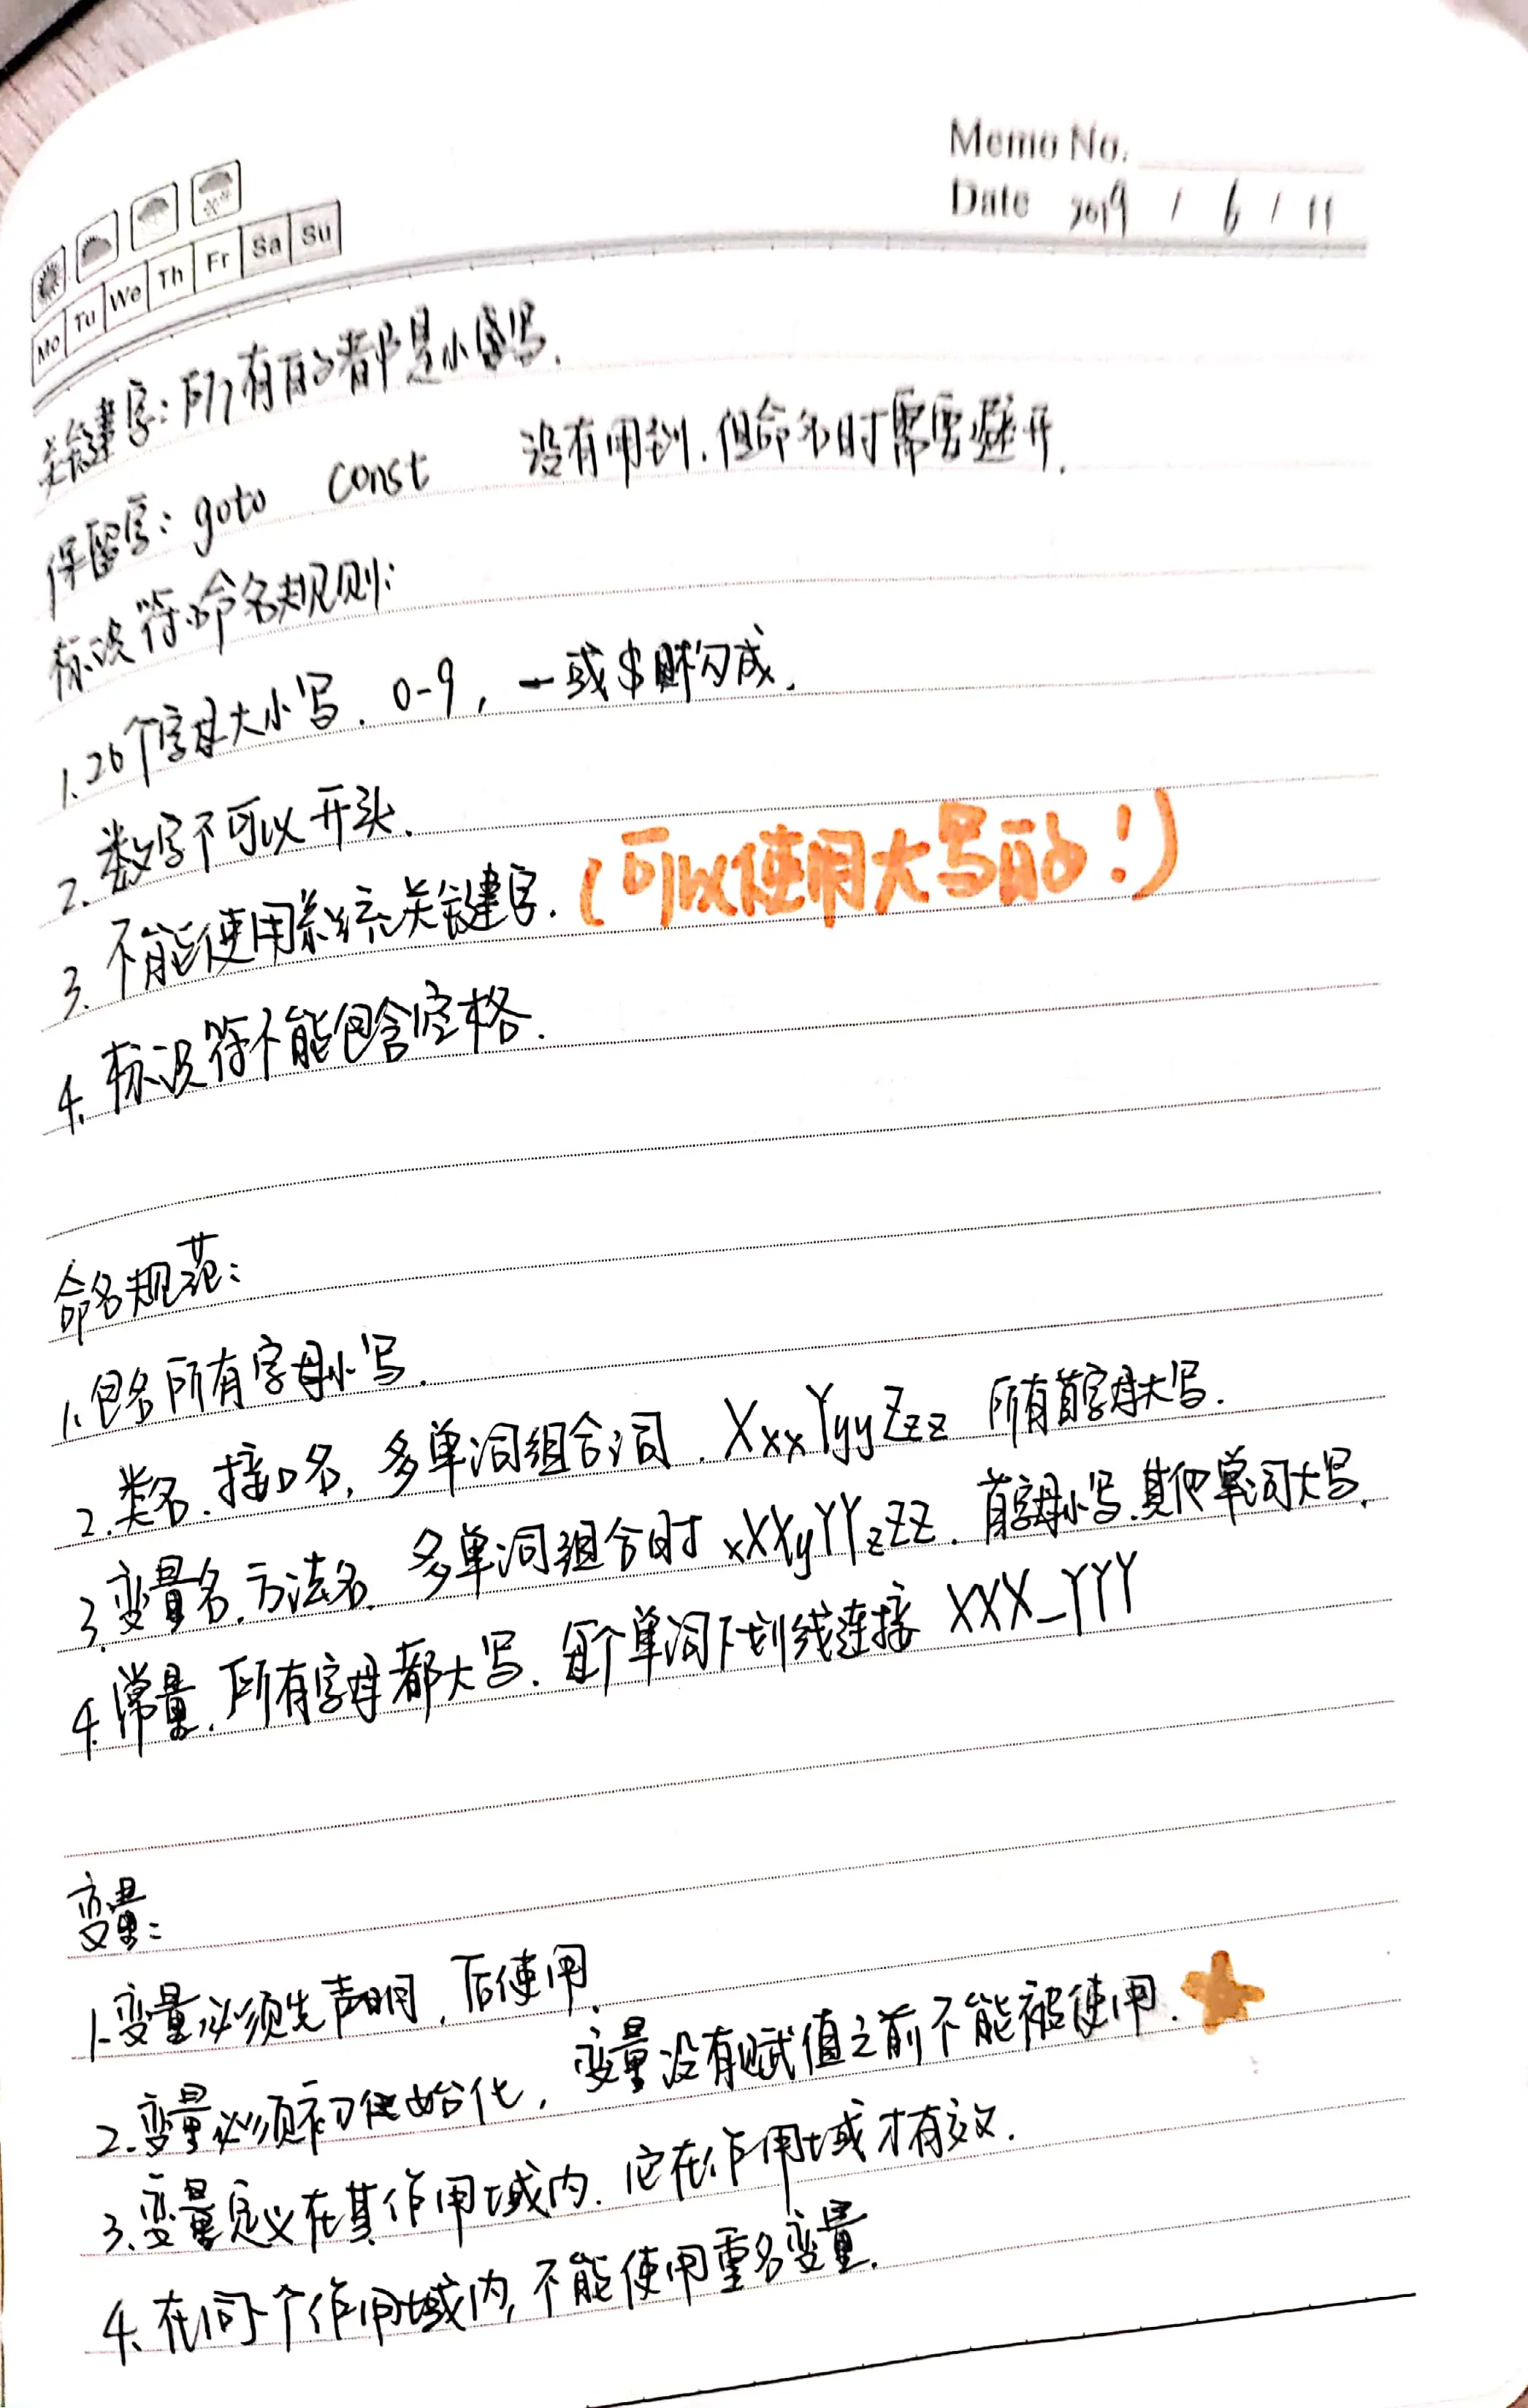 Memo No.
Date 2019 / 6 / 11
Mo Tu We Th Fr Sa Su
关键字：所有的都是小写.
保留字：goto const 没有用到.但命名时需要避开.
标识符命名规则：
1.26个字母大小写.0-9,_或$构成.
2.数字不可以开头.
3.不能使用系统关键字.(可以使用大写的！)
4.标识符不能包含空格.
命名规范：
1.包名所有字母小写.
2.类名.接口名,多单词组合词.XxxYyyZzz 所有首字母大写.
3.变量名.方法名.多单词组合时xXXyYYzZZ.首字母小写.其他单词大写.
4.常量.所有字母都大写.每个单词下划线连接XXX_YYY
变量：
1.变量必须先声明,后使用.
2.变量必须初始化,变量没有赋值之前不能被使用.
3.变量定义在其作用域内.它在作用域才有效.
4.在同一个作用域内,不能使用重名变量.